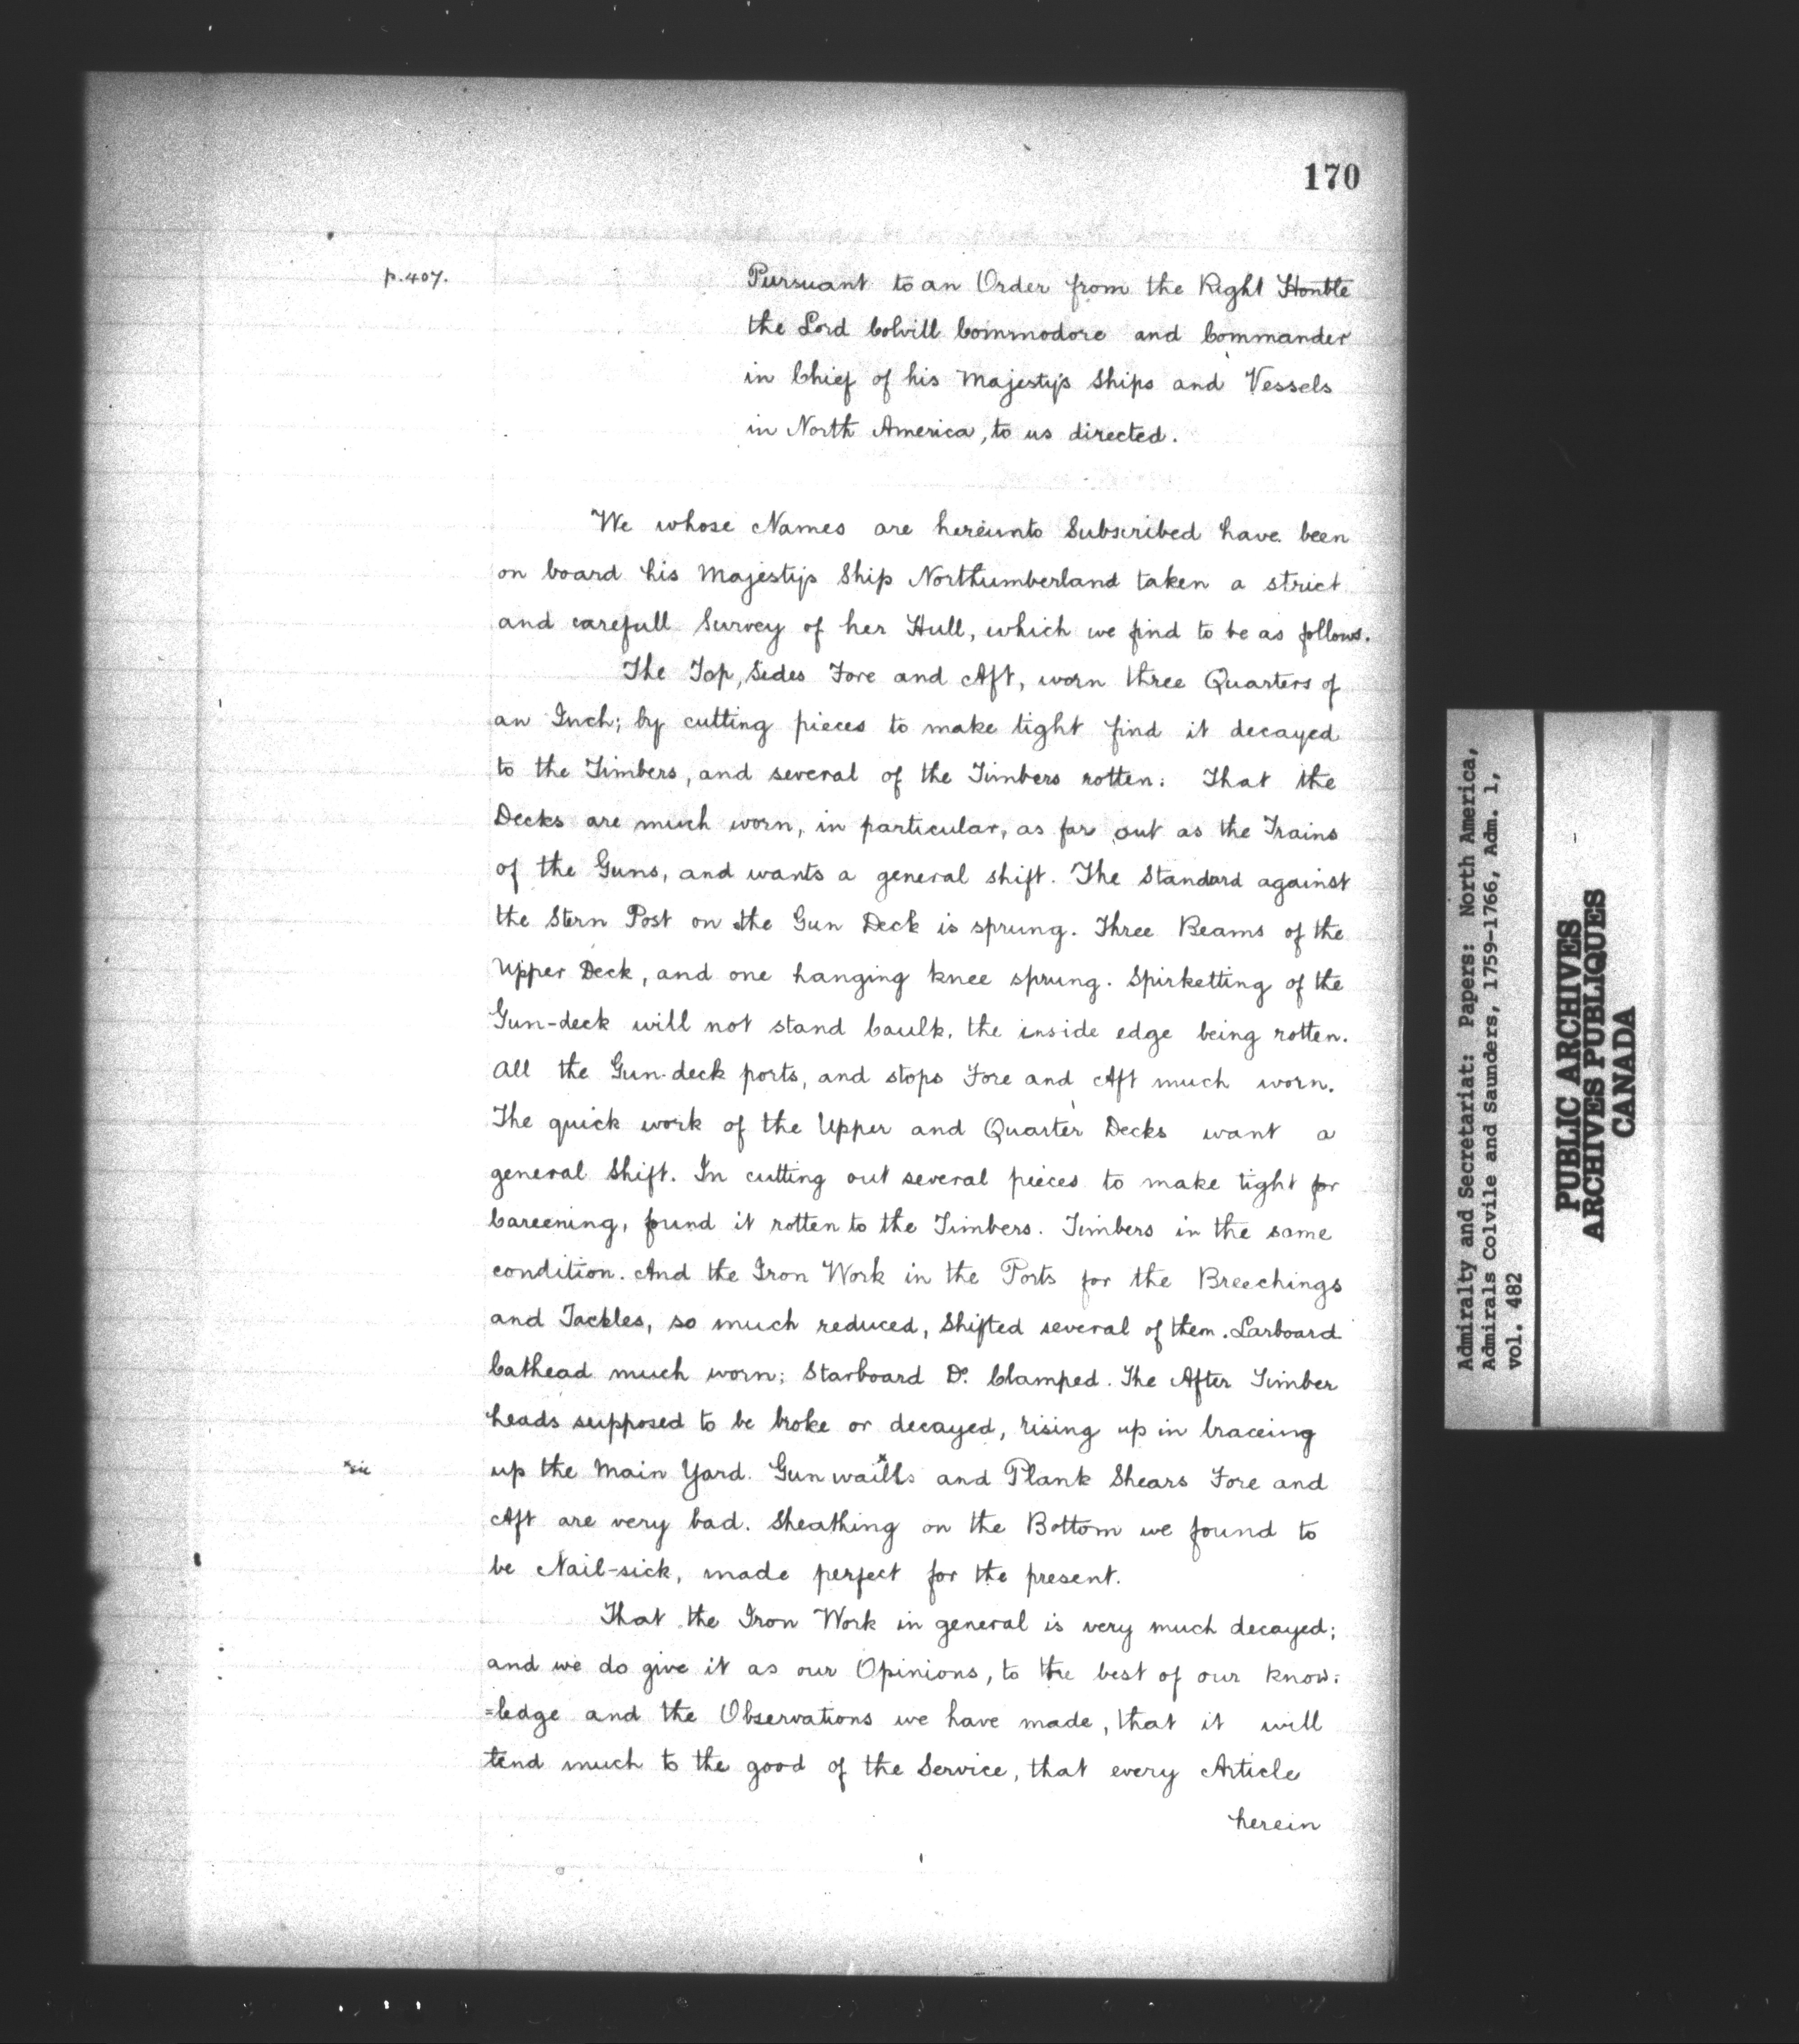 170
p.407.
Pursuant to an Order from the Right Honble
the Lord Colvill Commodore and Commander
in Chief of his Majesty's Ships and Vessels
in North America, to us directed.
We whose Names are hereunto Subscribed have been
on board his Majesty's Ship Northumberland taken a strict
and carefull Survey of her Hull, which we find to be as follows.
The Top, Sides Fore and Aft, worn three Quarters of
an Inch; by cutting pieces to make tight find it decayed
to the Timbers, and several of the Timbers rotten: That the
Decks are much worn, in particular, as far out as the Trains
of the Guns, and wants a general shift. The Standard against
the Stern Post on the Gun Deck is sprung. Three Beams of the
Upper Deck, and one hanging knee sprung. Spirketting of the
Gun-deck will not stand Caulk, the inside edge being rotten.
All the Gun-deck ports, and stops Fore and Aft much worn.
The quick work of the Upper and Quarter Decks want a
general Shift. In cutting out several pieces to make tight for
Careening, found it rotten to the Timbers. Timbers in the same
condition. And the Iron Work in the Ports for the Breechings
and Tackles, so much reduced, Shifted several of them. Larboard
Cathead much worn; Starboard Do. Clamped. The After Timber
heads supposed to be broke or decayed, rising up in braceing
*sic
up the Main Yard. Gun waills* and Plank Shears Fore and
Aft are very bad. Sheathing on the Bottom we found to
be Nail-sick, made perfect for the present.
That the Iron Work in general is very much decayed;
and we do give it as our Opinions, to the best of our know:
=ledge and the Observations we have made, that it will
tend much to the good of the Service, that every Article
herein
Admiralty and Secretariat: Papers: North America,
Admirals Colvile and Saunders, 1759-1766, Adm. 1,
vol. 482
PUBLIC ARCHIVES
ARCHIVES PUBLIQUES
CANADA